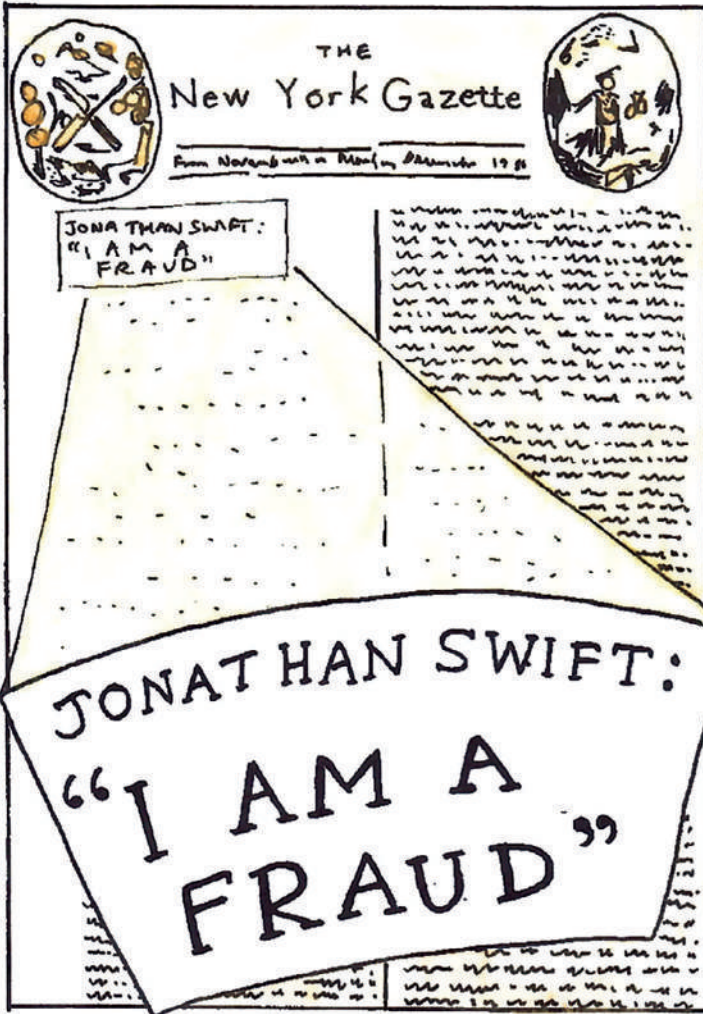 THE
New York Gazette
From November
JONATHAN SWIFT:
"I AM A
FRAUD"
JONATHAN SWIFT:
"I AM A
FRAUD"